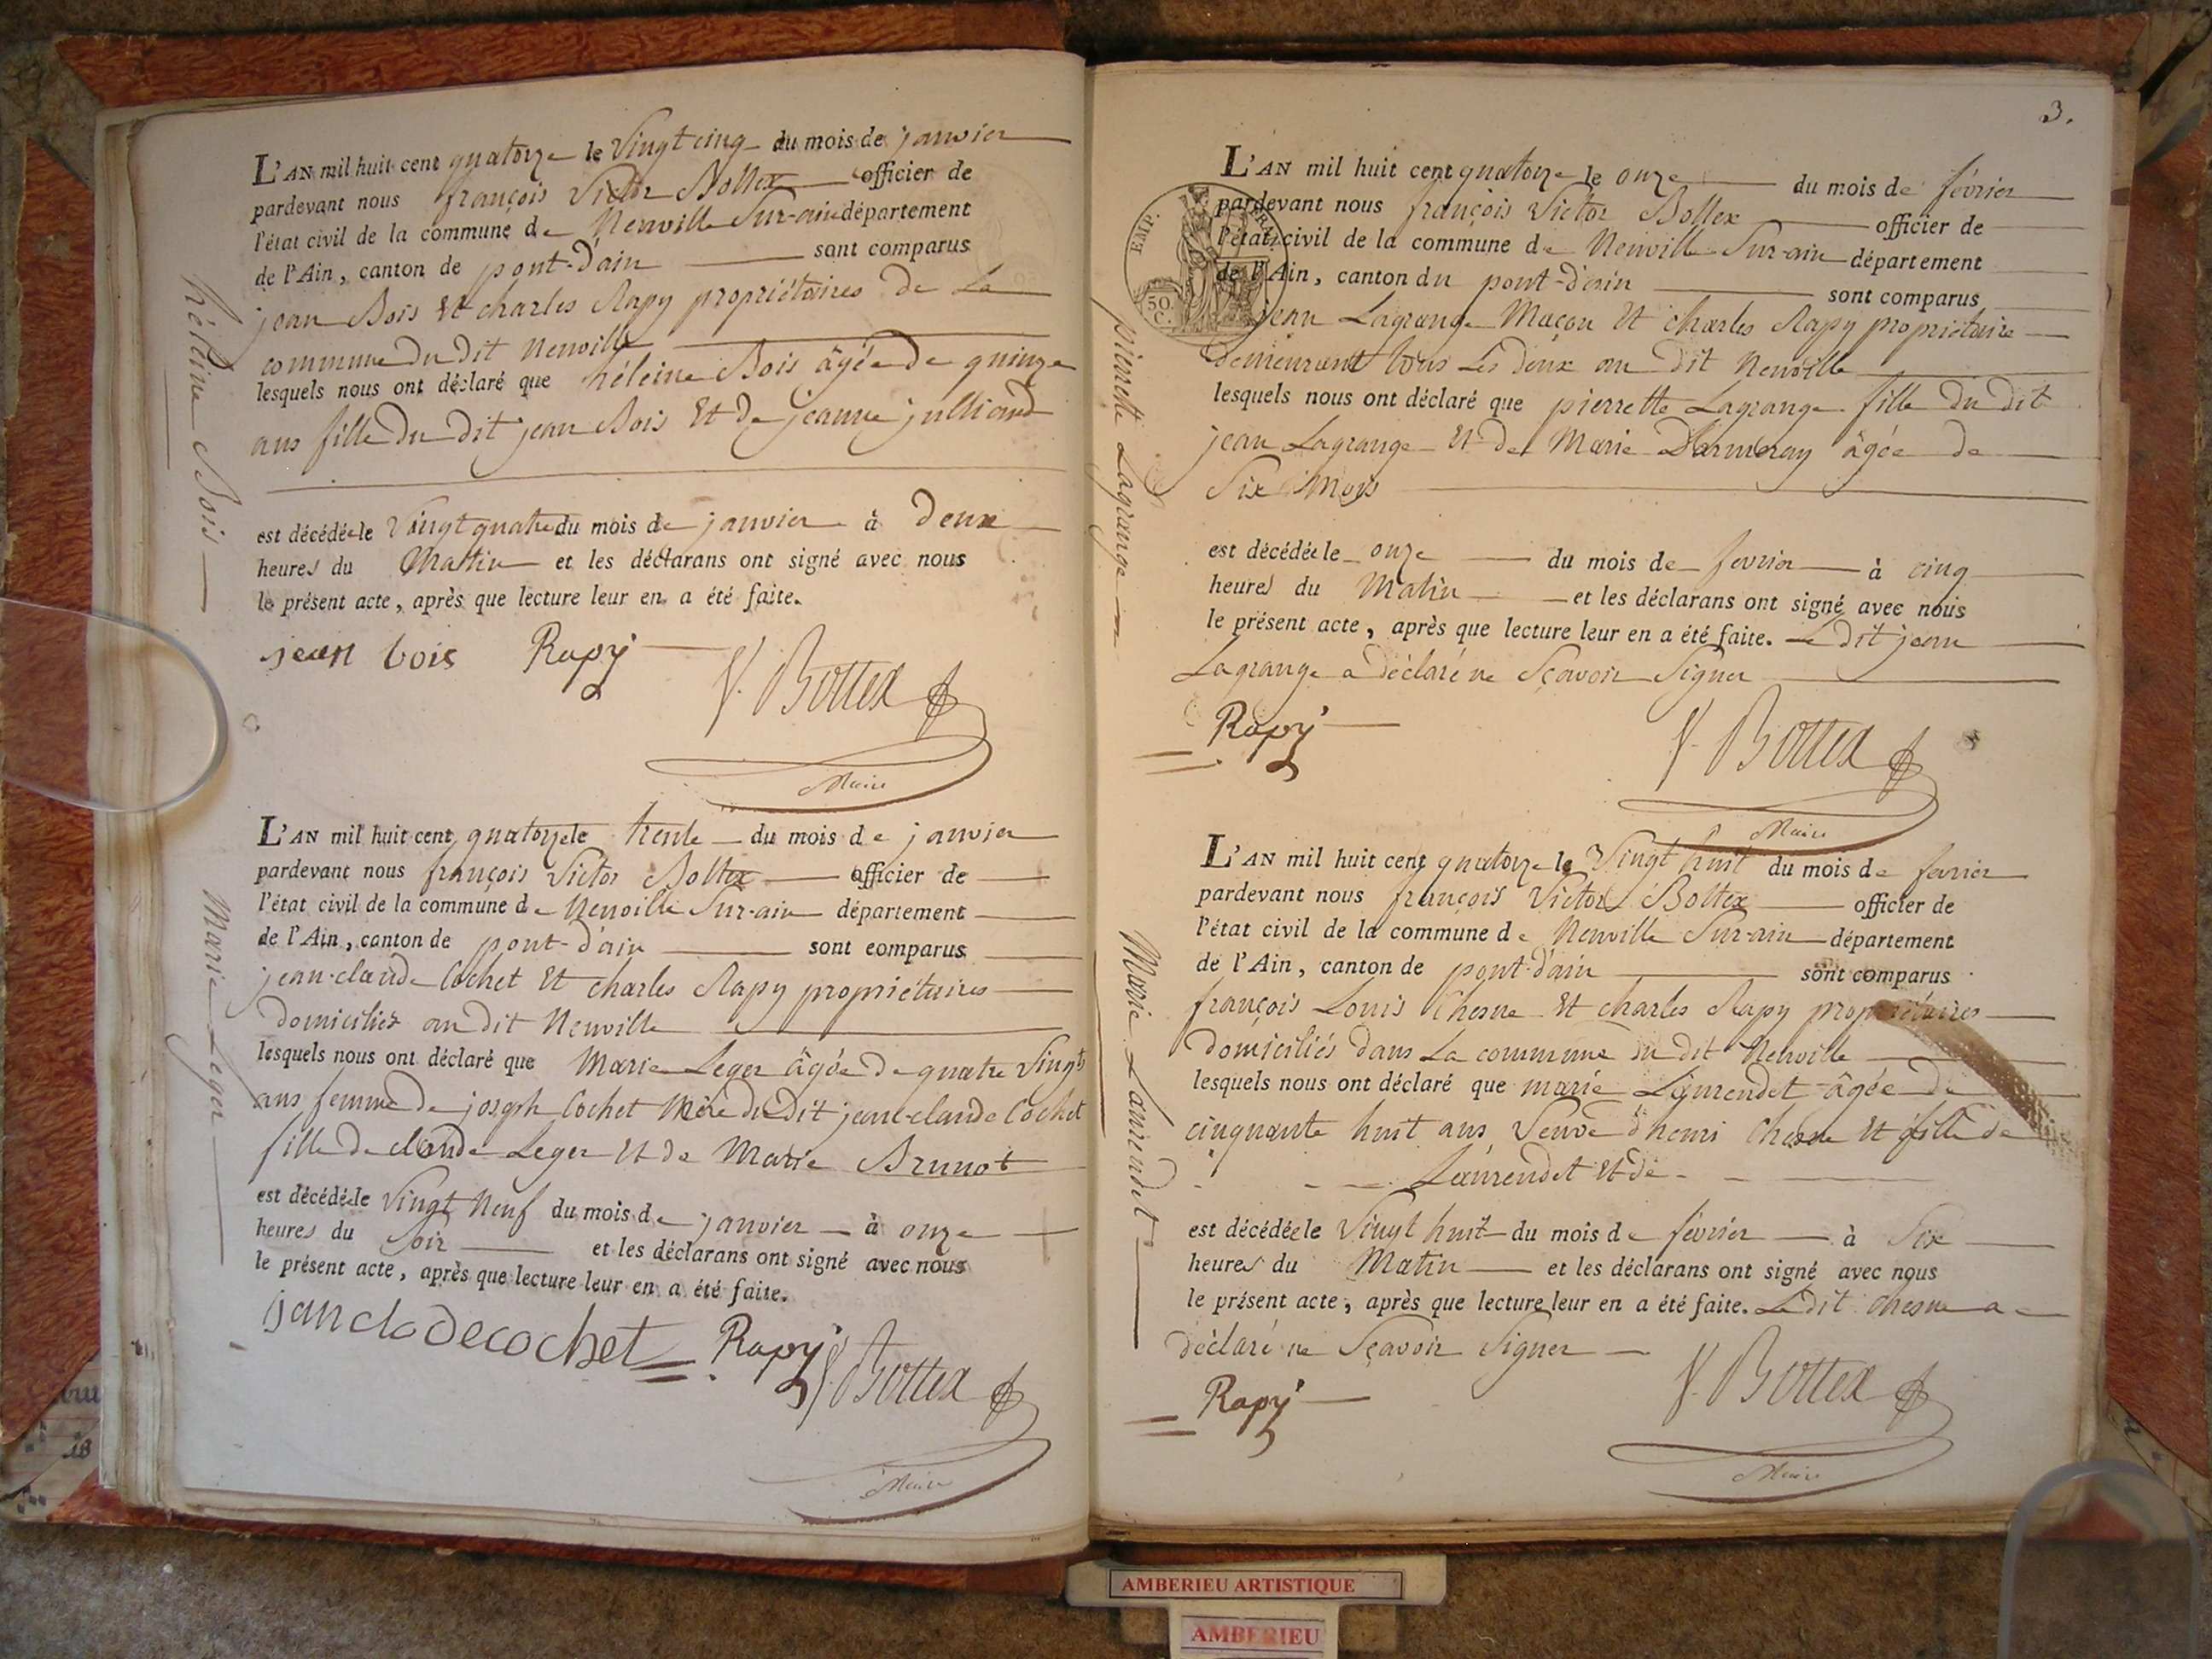 L'AN mil huit cent quatorze le Vingt cinq du mois de janvier
pardevant nous françois Victor Bottex officier de
l'état civil de la commune de Neuville Sur-ain département
de l'Ain, canton de pont-d'ain sont comparus
jean Bois Et charles Rapy propriétaires de La
commune du dit Neuville
lesquels nous ont déclaré que héleine Bois âgée de quinze
ans fille du dit jean Bois Et de jeanne julliand
est décédée le Vingt quatre du mois de janvier à deux
heures du Matin et les déclarans ont signé avec nous
le présent acte, après que lecture leur en a été faite.
jean bois Rapy
V. Bottex
Maire
héleine Bois
L'AN mil huit cent quatorze le trente du mois de janvier
pardevant nous françois Victor Bottex officier de
l'état civil de la commune de Neuville Sur-ain département
de l'Ain, canton de pont-d'ain sont comparus
jean-claude Cochet Et charles Rapy propriétaires
domiciliés au dit Neuville
lesquels nous ont déclaré que Marie Leger âgée de quatre Vingt
ans femme de joseph Cochet Mère du dit jean-claude Cochet
fille de claude Leger Et de Marie Brunot
est décédée le Vingt Neuf du mois de janvier à onze
heures du Soir et les déclarans ont signé avec nous
le présent acte, après que lecture leur en a été faite.
jan clodecochet Rapy V. Bottex
Maire
Marie Leger
3.
L'AN mil huit cent quatorze le onze du mois de février
pardevant nous françois Victor Bottex officier de
l'état civil de la commune de Neuville Sur-ain département
de l'Ain, canton du pont-d'ain sont comparus
jean Lagrange Maçon Et charles Rapy propriétaire
demeurant tous Les deux au dit Neuville
lesquels nous ont déclaré que pierrette Lagrange fille du dit
jean Lagrange Et de Marie Darmeray âgée de
Six Mois
est décédée le onze du mois de fevrier à cinq
heures du Matin et les déclarans ont signé avec nous
le présent acte, après que lecture leur en a été faite. Le dit jean
Lagrange a déclaré ne Sçavoir Signer
Rapy
V. Bottex
Maire
EMP.
50 C.
pierrette Lagrange
L'AN mil huit cent quatorze le Vingt huit du mois de fevrier
pardevant nous françois Victor Bottex officier de
l'état civil de la commune de Neuville Sur-ain département
de l'Ain, canton de pont-d'ain sont comparus
françois Louis Chesne Et charles Rapy propriétaires
domiciliés dans La commune du dit Neuville
lesquels nous ont déclaré que marie Laurendet âgée de
cinquante huit ans Veuve d'henri Chesne Et fille de
Laurendet Et de
est décédée le Vingt huit du mois de février à Six
heures du Matin et les déclarans ont signé avec nous
le présent acte, après que lecture leur en a été faite. Le dit chesne a
déclaré ne Sçavoir Signer
Rapy
V. Bottex
Maire
Marie Laurendet
AMBERIEU ARTISTIQUE
AMBERIEU